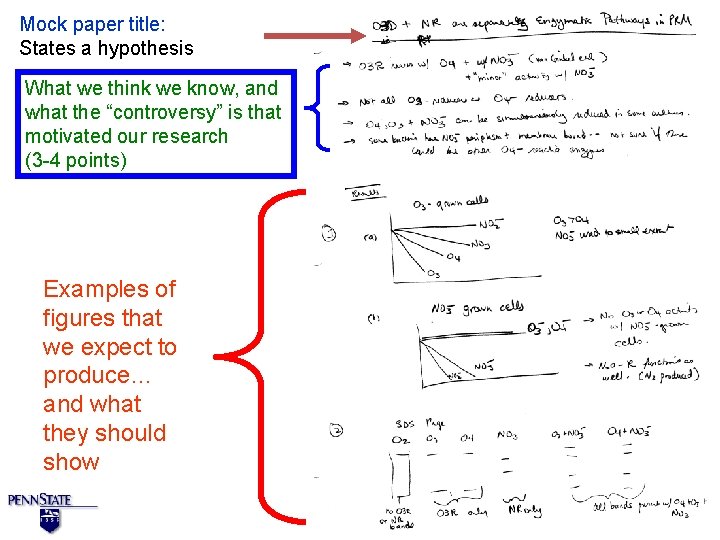 Mock paper title:
States a hypothesis
O3D + NR are separately Enzymatic Pathways in PRM
What we think we know, and
what the “controversy” is that
motivated our research
(3-4 points)
→ O3R w/ O4 + w/ NO3-
+ "minor" activity w/ NO3-
→ Not all O3- O4- reducers.
→ O4, O3 + NO3- can be simultaneously reduced in some
→ Some bacteria have NO3- periplasm + membrane bound -- not sure if there
could be other O4- enzymes
Results
O3- grown cells
1
(a)
NO2-
NO3
O4
O3
O3 > O4
NO3- used to small extent
Examples of
figures that
we expect to
produce…
and what
they should
show
NO3- grown cells
(b)
O3-, O4-
NO3-
→ No O3 or O4 activity
w/ NO3- grown
cells.
→ functions as
well. (N2 produced)
2
SDS Page
O2 O3 O4 NO3 O3+NO3- O4+NO3-
no O3R
or NR
bands
O3R only
NR only
all bands w/ O4 +
NO3
PENNSTATE
1 8 5 5